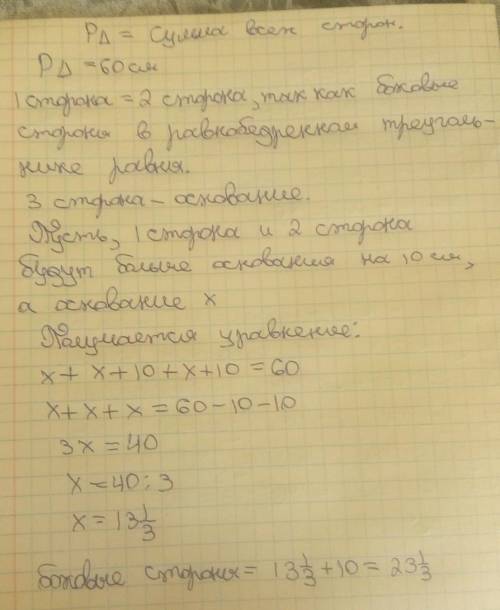 P△ = сумма всех сторон.
P△ = 60 см
1 сторона = 2 сторона, так как боковые
стороны в равнобедренном треуголь-
нике равны.
3 сторона – основание.
Пусть, 1 сторона и 2 сторона
будут больше основания на 10 см,
а основание x
Получается уравнение:
x + x + 10 + x + 10 = 60
x + x + x = 60 - 10 - 10
3x = 40
x = 40 : 3
x = 13 1/3
Боковые стороны = 13 1/3 + 10 = 23 1/3